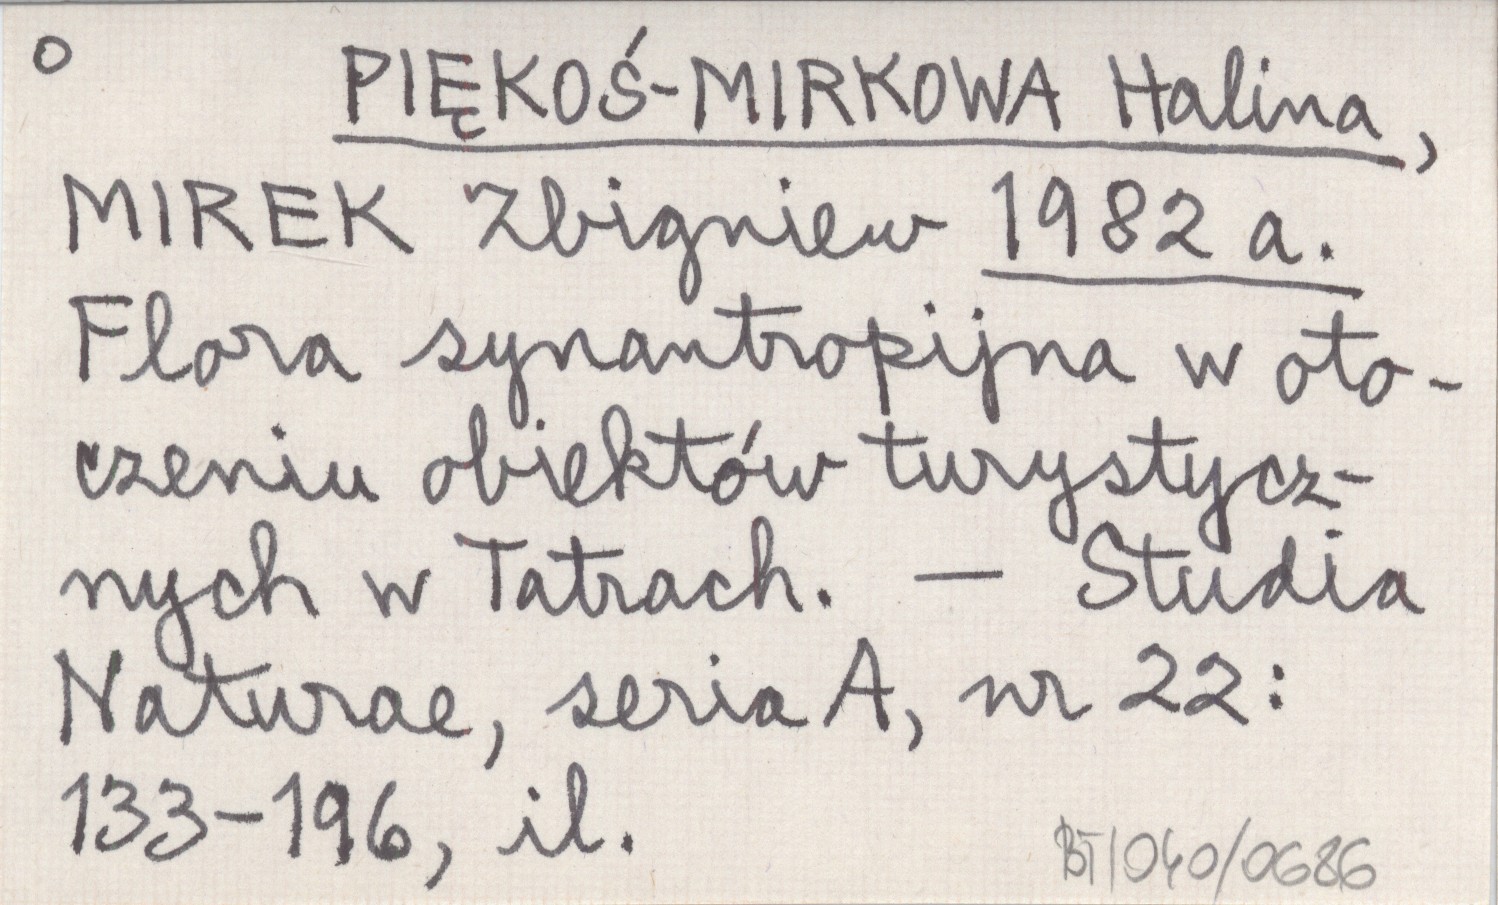 o PIĘKOŚ-MIRKOWA Halina,
MIREK Zbigniew 1982 a.
Flora synantropijna w oto-
czeniu obiektów turystycz-
nych w Tatrach. — Studia
Naturae, seria A, nr 22:
133-196, il.
BT/040/0686